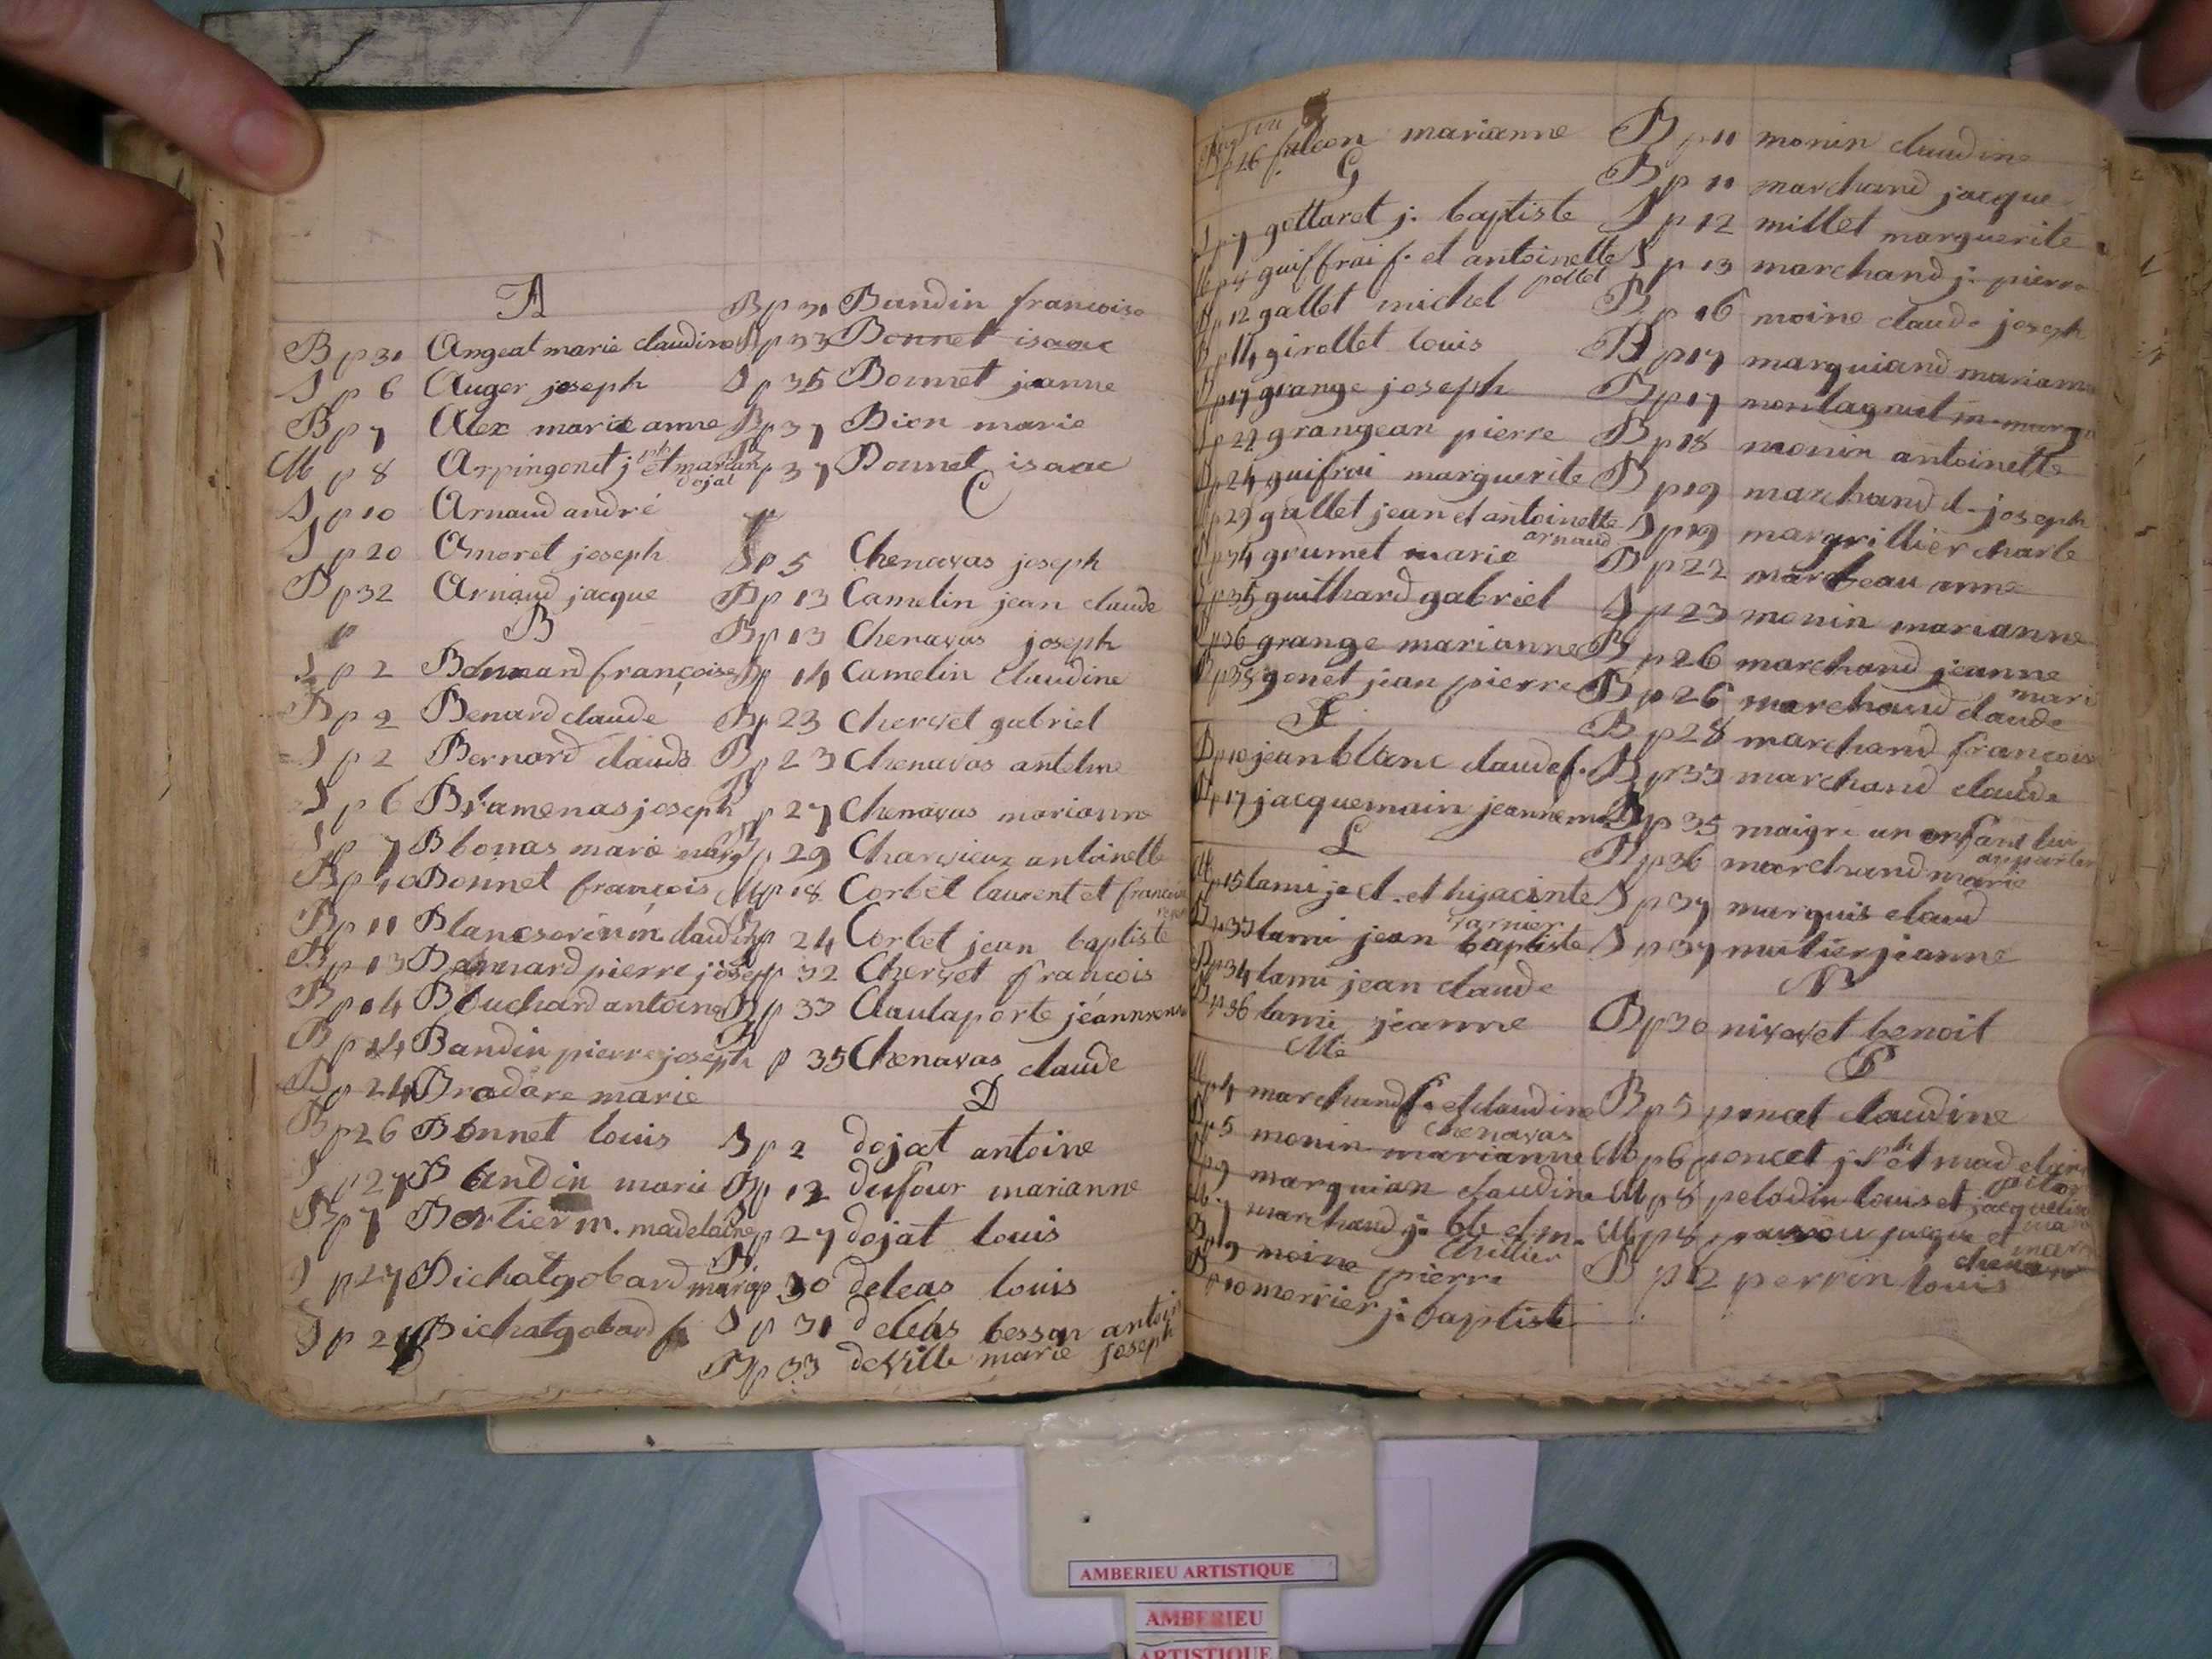 A
B p 31 Angeat marie claudine
S p 6 Auger joseph
B p 7 Alex marie anne
M p 8 Arpingonet j ph et marian
dojat
S p 10 Arnaud andré
S p 20 Amoret joseph
B p 32 Arnaud jacque
B
S p 2 françoise
B p 2 Benard claude
S p 2 Bernard claude
S p 6 Bramenas joseph
S p 7 Bbonas marie marg
B p 10 Bonnet françois
B p 11
B p 13 Bernard pierre joseph
B p 14 Bouchard antoine
B p 14 Bandin pierre joseph
B p 24 Bradare marie
B p 26 Bonnet louis
S p 27 Bandin marie
B p 7 Bertier m. madelaine
S p 27 Bichatgobard marie
S p 2 Bichatgobard f
B p 31 Bandin francoise
B p 33 Bonnet isaac
S p 35 Bonnet jeanne
B p 37 Bion marie
p 37 Bonnet isaac
C
S p 5 Chenavas joseph
B p 13 Camelin jean claude
B p 13 Chenavas joseph
B p 14 Camelin claudine
B p 23 Chervet gabriel
B p 23 Chenavas antelme
p 27 Chenavas marianne
p 29 Charvieux antoinette
M p 18 Corbet laurent et
p 24 Corbet jean baptiste
p 32 Chervet francois
B p 33 Claulaporte
p 35 Chenavas claude
D
S p 2 dojat antoine
B p 12 dufour marianne
S p 27 dojat louis
p 30 deleas louis
S p 31 deleas besson antoin
B p 33 deville marie joseph
p 26 falcon marianne
G
S p 7 gottaret j. baptiste
M p 4 guiffrai f. et antoinette
pottet
B p 12 gallet michel
B p 14 girollet louis
B p 17 grange joseph
S p 22 grangean pierre
B p 24 guifrai marguerite
p 29 gallet jean et antoinette
arnaud
p 34 grumet marie
S p 35 guilhard gabriel
p 36 grange marianne
B p 38 gonet jean pierre
B p 10 jeanblanc claude f.
B p 17 jacquemain jeanne
L
M p 15 lami j. cl. et hijacinte
varnier
B p 33 lami jean baptiste
B p 34 lami jean claude
B p 36 lami jeanne
M
M p 4 marchand f. et claudine
chenavas
B p 5 monin marianne
p 9 marguian claudine
M p 7 marchand j. bte et m.
chillier
B p 9 moine pierre
B p 10 merrier j. baptiste
B p 11 monin claudine
B p 11 marchand jacque
S p 12 millet marguerite
S p 13 marchand j. pierre
B p 16 moine claude joseph
B p 17 marguiand mariann
B p 17 montagnut m. marg
B p 18 monin antoinette
B p 19 marchand cl. joseph
S p 19 margrillier charle
B p 22 marbeau anne
S p 23 monin marianne
B p 26 marchand jeanne
mari
B p 26 marchand claude
B p 28 marchand françois
B p 33 marchand claude
B p 35 maigre un enfant lui
apparten
B p 36 marchand marie
S p 37 marquis claud
S p 37 jeanne
N
B p 30 nivavet benoit
P
B p 5 poncet claudine
M p 6 poncet j. ph et madelaine
M p 8 pelodin louis et jacqueline
M p 8 jacque et
B p 12 perrin louis
AMBERIEU ARTISTIQUE
AMBERIEU
ARTISTIQUE